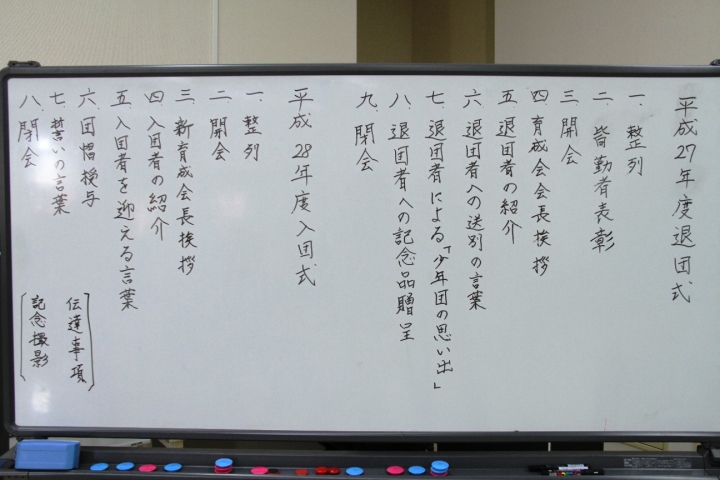 平成27年度退団式
一. 整列
二. 皆勤者表彰
三. 開会
四. 育成会会長挨拶
五. 退団者の紹介
六. 退団者への送別の言葉
七. 退団者による「少年団の思い出」
八. 退団者への記念品贈呈
九. 閉会
平成28年度入団式
一. 整列
二. 開会
三. 新育成会長挨拶
四. 入団者の紹介
五. 入団者を迎える言葉
六. 団帽授与
七. 誓いの言葉
八. 閉会
伝達事項
記念撮影